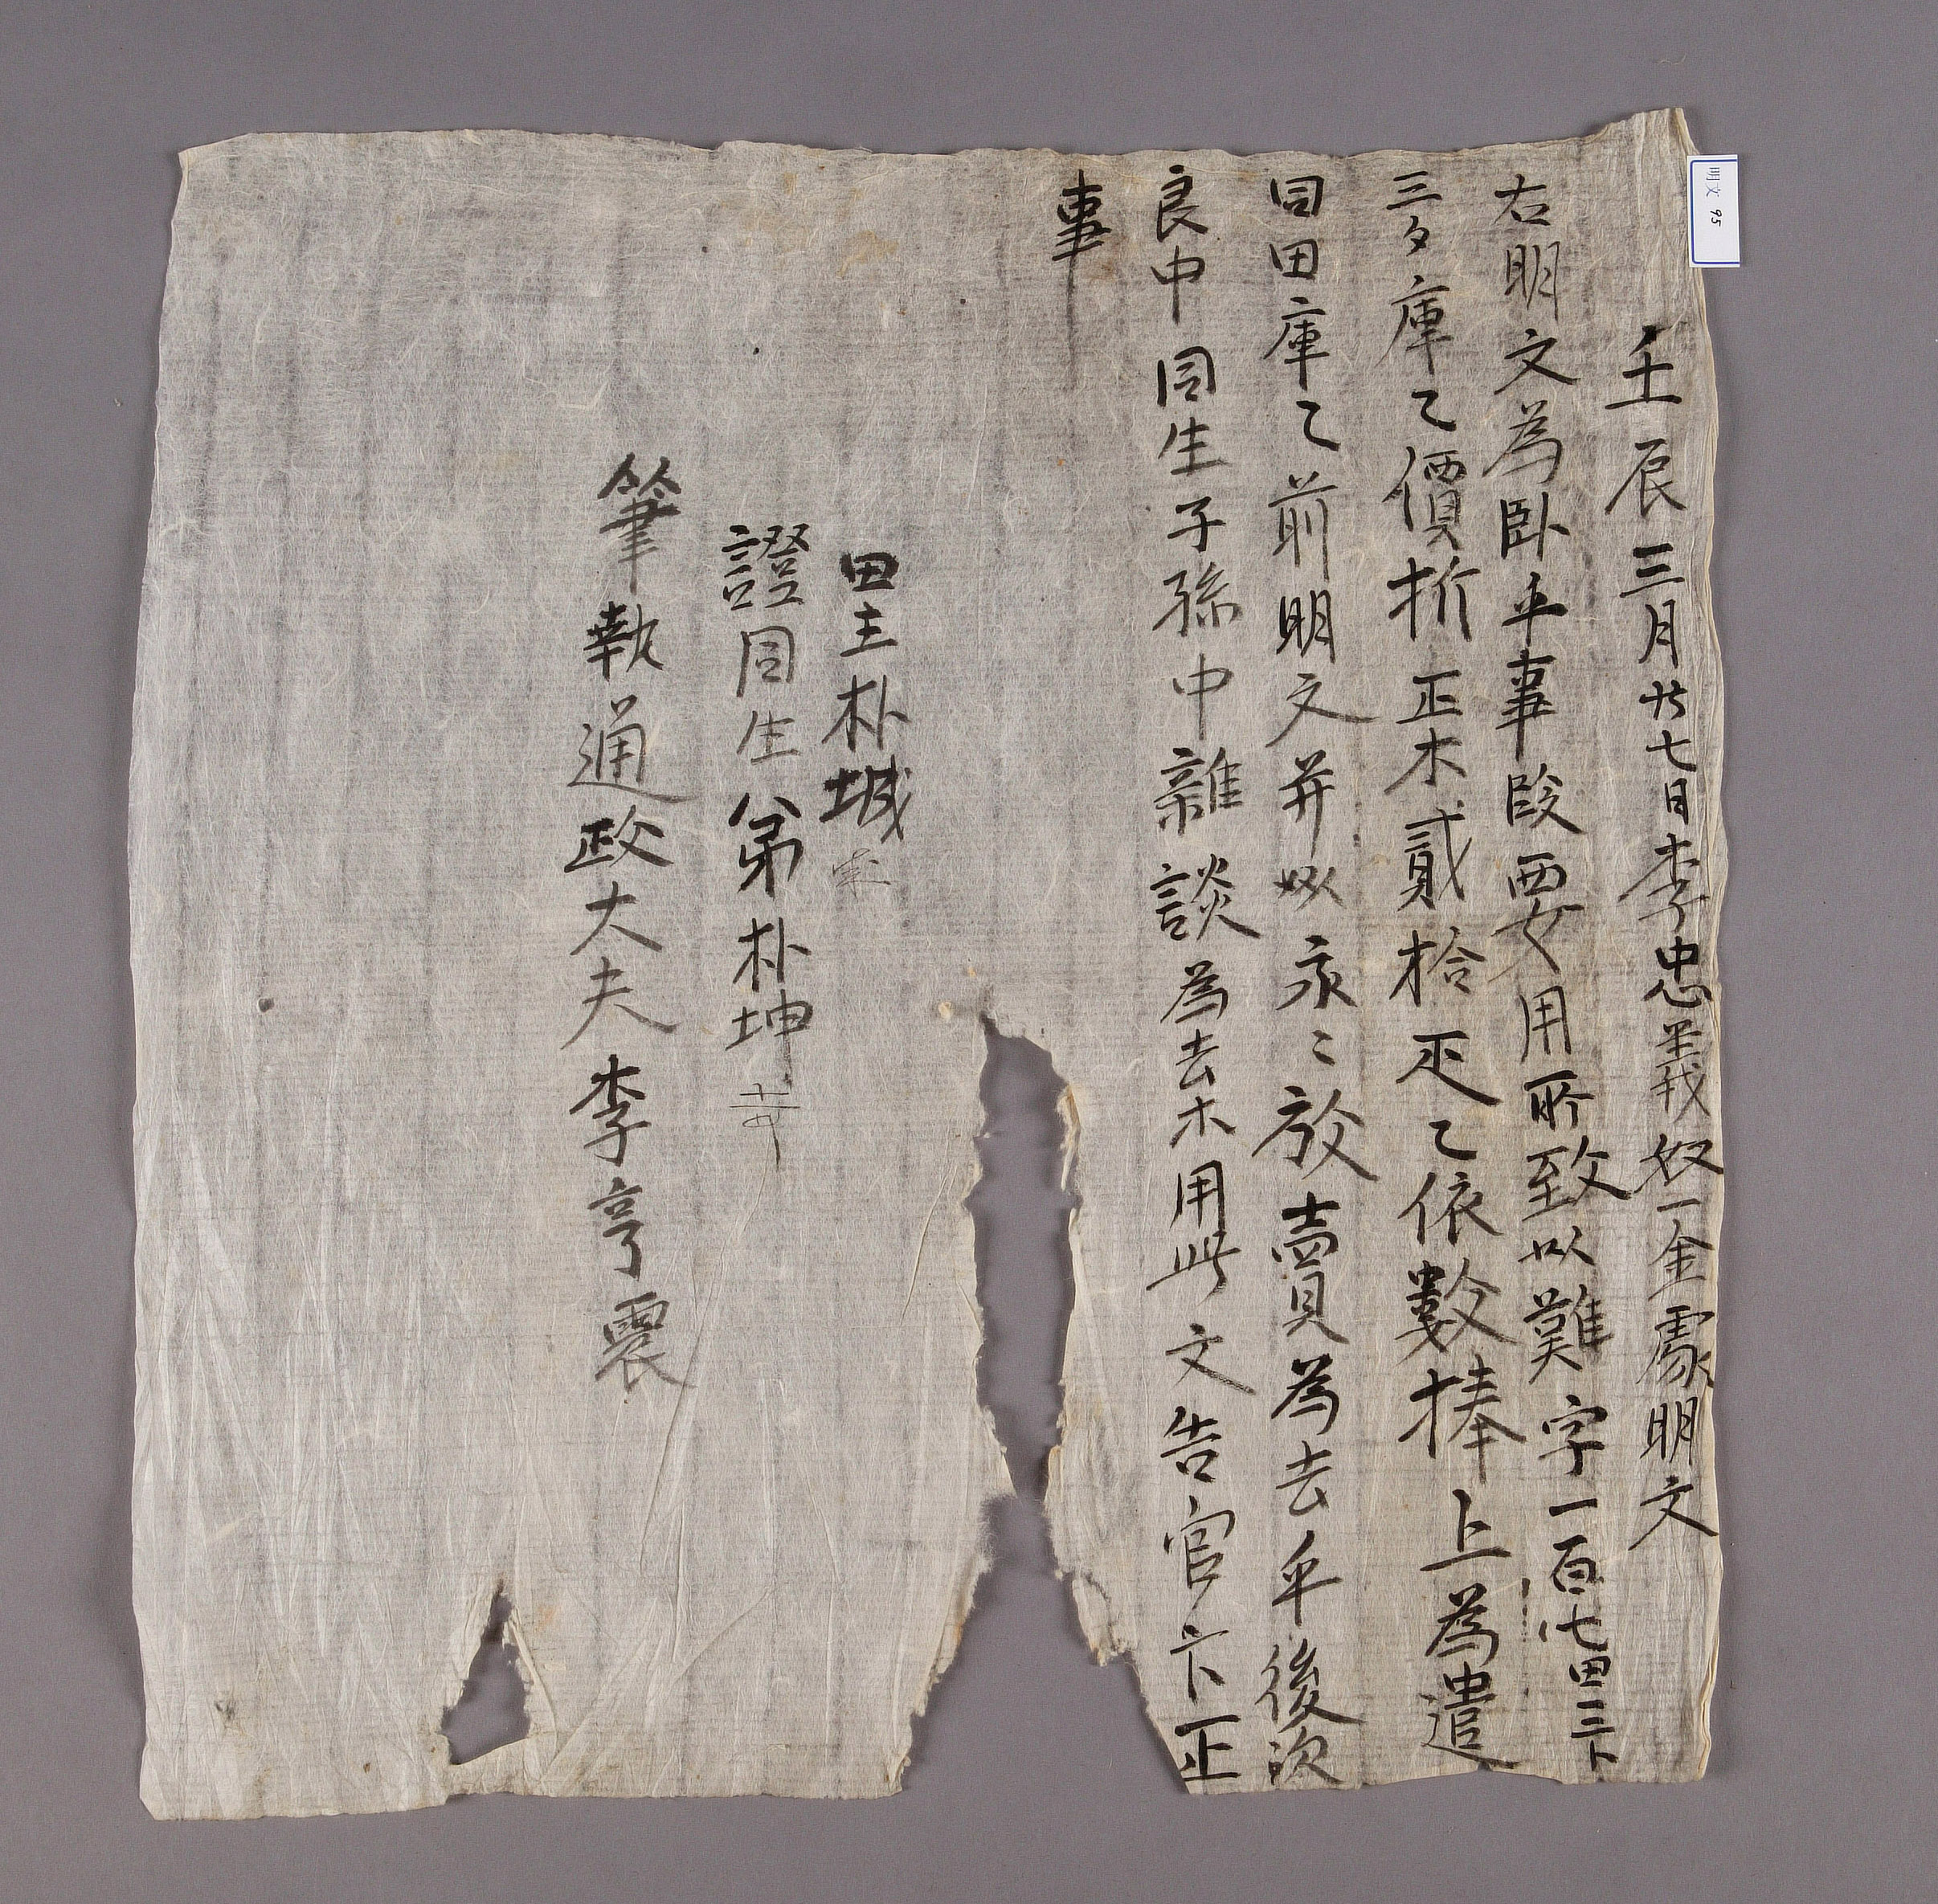 明文 95
壬辰三月廿七日李忠義奴一金處明文
右明文為卧乎事段要用所致以難字一百七田三卜
三夕庫乙價折正木貳拾疋乙依數捧上為遣
同田庫乙前明文并以永〻放賣為去乎後次
良中同生子孫中雜談為去木用此文告官卞正
事
田主朴城
證同生弟朴坤
筆執通政大夫李亨震